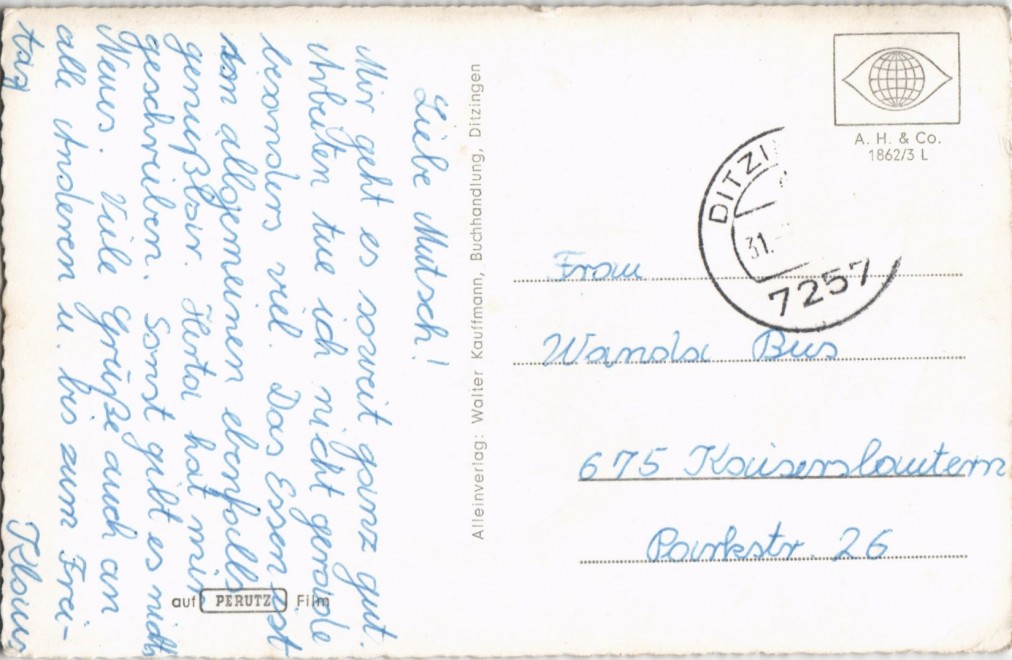 Liebe Mutsch!
Mir geht es soweit ganz gut.
Arbeiten tue ich nicht gerade
besonders viel. Das Essen ist
im allgemeinen ebenfalls
genießbar. Herta hat mir
geschrieben. Sonst gibt es nichts
Neues. Viele Grüße auch an
alle Anderen u. bis zum Frei-
tag Klaus
auf PERUTZ Film
Alleinverlag: Walter Kauffmann, Buchhandlung, Ditzingen
A. H. & Co.
1862/3 L
DITZI
31.
7257
Frau
Wanda Bus
675 Kaiserslautern
Parkstr. 26